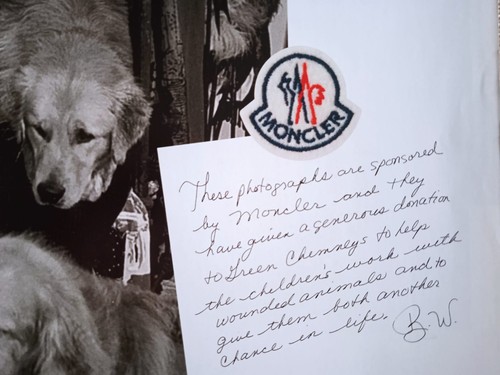 MONCLER
These photographs are sponsored
by Moncler and they
have given a generous donation
to Green Chimney's to help
the children's work with
wounded animals and to
give them both another
chance in life.
B.W.